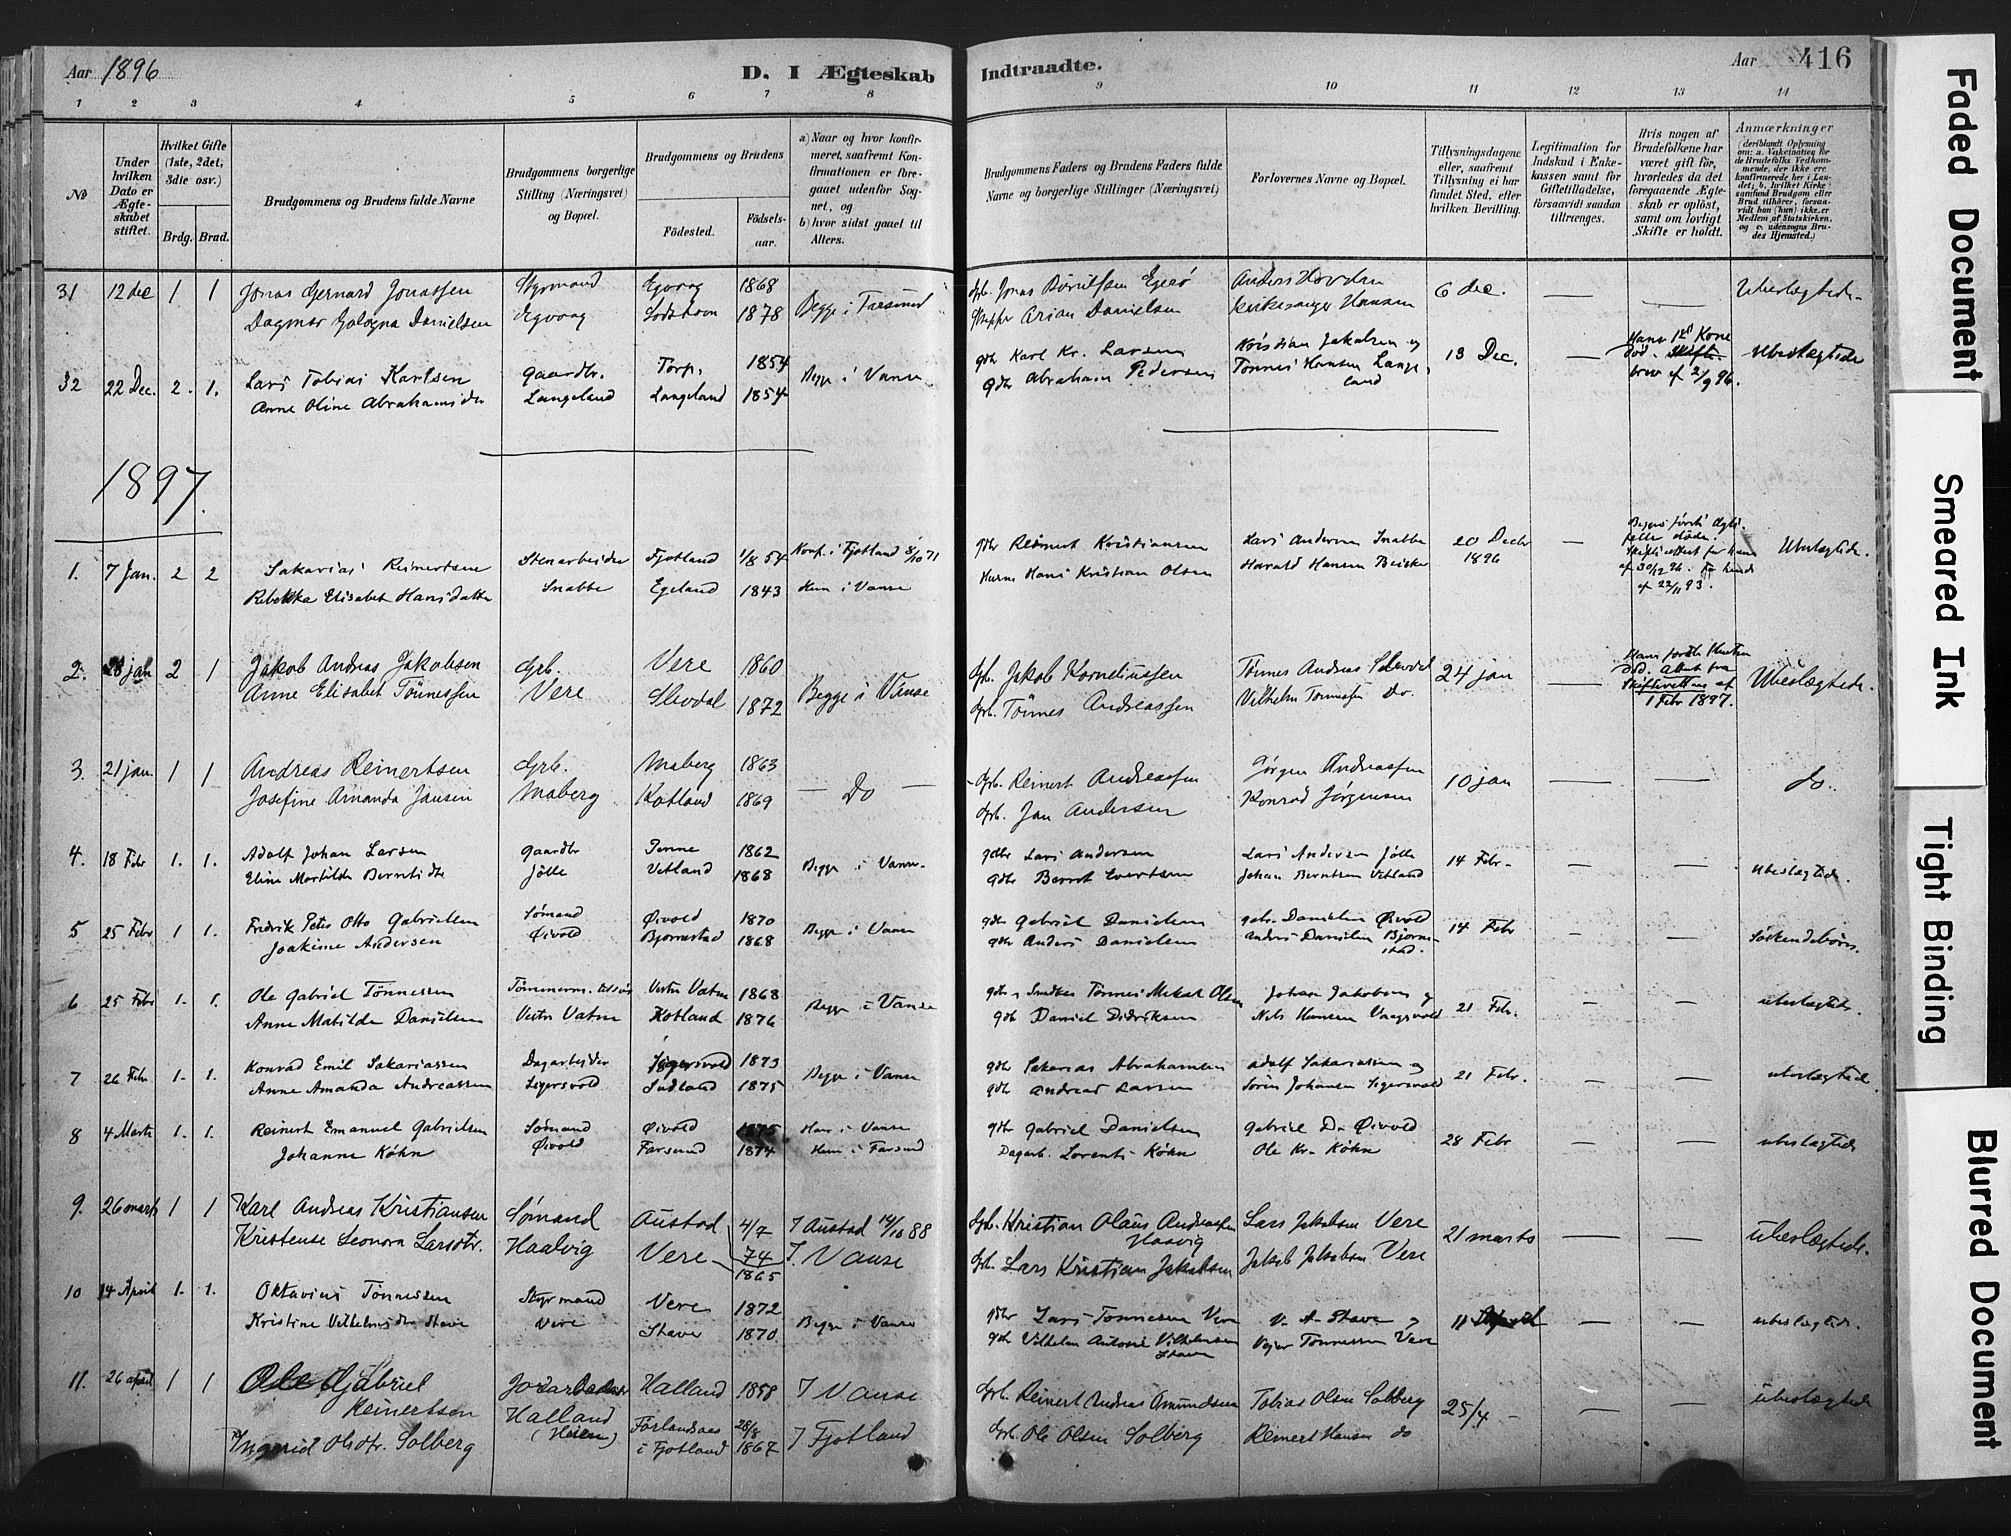 Aar 1896
D. I Ægteskab
Indtraadte.
Aar
416
1 2 3 4 5 6 7 8 9 10 11 12 13 14
№
Under hvilken Dato er Ægteskabet stiftet.
Hvilket Gifte (1ste, 2det, 3die osv.)
Brdg. Brud.
Brudgommens og Brudens fulde Navne
Brudgommens borgerlige Stilling (Næringsvei) og Bopæl.
Brudgommens og Brudens
Födested.
Födselsaar.
a) Naar og hvor konfirmeret, saafremt Konfirmationen er foregaaet udenfor Sognet, og
b) hvor sidst gaaet til Alters.
Brudgommens Faders og Brudens Faders fulde Navne og borgerlige Stillinger (Næringsvei)
Forlovernes Navne og Bopæl.
Tillysningsdagene eller, saafremt Tillysning ei har fundet Sted, efter hvilken Bevilling.
Legitimation for Indskud i Enkekassen samt for Giftetilladelse, forsaavidt saadan tiltrænges.
Hvis nogen af Brudefolkene har været gift för, hvorledes da det foregaaende Ægteskab er oplöst, samt om lovligt Skifte er holdt.
Anmærkninger
31 12 dec 1 1 Jonas Gernard Jonassen Styrmand Egvaag 1868 Begge i Farsund Grb. Jonas Börildsen Egeö Anders Hovden 6 dec. — — Ubeslægtede.
Dagmar Gologna Danielsen Egvaag 1878 Arian Danielsen kirkesanger Hansen
32 22 Dec. 2. 1. Lars Tobias Karlsen Gaardbr. Torp. 1854 Begge i Vanse gdbr Karl Kr. Larsen Kristian Jakobsen og 13 Dec. — Hans 1st Kone död. Skiftebrev af 2/9 96. Ubeslægtede
Anne Oline Abrahamsdtr Langeland Langeland 1854 gdbr Abraham Pedersen Tönnes Hansen Langeland
1897.
1. 7 Jan. 2 2 Sakarias Reinertsen Stenarbeider Fjotland 1/8 54 Konf. i Fjotland 8/10 71 gdbr Reinert Kristiansen Lars Andersen Snabbe 20 Decbr 1896 — Ubeslægtede.
Rebekka Elisabet Hansdatter Snabbe Egeland 1843 Hun i Vanse Husm Hans Kristian Olsen Harald Hansen
af 30/12 96. for hende af 22/11 93.
2. 28 jan 2 1 Jakob Andreas Jakobsen Grb. Vere 1860 Begge i Vanse Grb. Jakob Korneliussen Tønnes Andreas Slevdal 24 jan — Skifteretten af 1 Febr 1897. Ubeslægtede.
Anne Elisabet Tönnessen Vere Slevdal 1872 Grb. Tönnes Andreassen Vilhelm Tönnessen Do.
3. 21 jan. 1 1 Andreas Reinertsen Grb. Maberg 1863 — Do — Grb. Reinert Andreassen Jörgen Andreassen 10 jan — — do.
Josefine Amanda Jansen Maberg Kotland 1869 Grb. Jan Andersen Konrad Jörgensen
4. 18 Febr 1. 1. Adolf Johan Larsen Gaardbr Penne 1862 Begge i Vanse. gdbr Lars Andersen Lars Andersen Jölle 14 Febr. — — ubeslægtede.
Eline Martilde Berntsdtr Jölle Vetland 1868 gdbr Bernt Evertsen Johan Berntsen Vetland
5 25 Febr 1 1. Fredrik Peter Otto Gabrielsen Sømand Øivold 1870 Begge i Vanse gdbr Gabriel Danielsen gabr. Danielsen Øivold 14 Febr — — Söskendebörn.
Joakime Andersen Øivold Bjørnestad 1868 gdbr Anders Danielsen anders Danielsen Bjørnestad.
6 25 Febr 1. 1. Ole Gabriel Tönnessen Tömmerm. Vestre Vatne 1868 Begge i Vanse gdbr og Smed Tönnes Mikal Olsen Johan Jakobsen og 21 Febr. — — ubeslægtede.
Anne Matilde Danielsen Vestre Vatne Kotland 1876 gdbr Daniel Didriksen Nils Hansen Vaagsvold
7 26 Febr 1. 1. Konrad Emil Sakariassen Dagarbeider Sigersvold 1873 Begge i Vanse gdbr Sakarias Abrahamsen Adolf Sakariassen og 21 Febr. — — ubeslægtede.
Anne Amanda Andreassen Sigersvold Sudland 1875 gdbr Andreas Larsen Sören Johansen Sigersvold
8 4 Marts 1. 1. Reinert Emanuel Gabrielsen Sømand Øivold 1875 Han i Vanse gdbr Gabriel Danielsen Gabriel D. Øivold 28 Febr — — ubeslægtede
Johanne Köhn Øivold Farsund 1874 Hun i Farsund Dagarb. Lorents Köhn Ole Kr. Köhn
9. 26 marts 1 1 Karl Andreas Kristiansen Sømand Austad 4/7 74 I Austad 14/10 88 Grb. Kristian Olaus Andreassen Haavig Lars Jakobsen Vere 21 marts — — ubeslægtede.
Kristense Leonora Larsdtr. Haavig Vere 1865 I. Vanse Grb. Lars Kristian Jakobsen Jakob Jakobsen Vere
10 14 April 1. 1. Oktavius Tönnessen Styrmand Vere 1872 Begge i Vanse gdbr Lars Tönnessen Vere V. A. Stave og 11 April — — ubeslægtede.
Kristine Vilhelmsdtr Stave Vere Stave 1870 gdbr Vilhelm Antoni Vilhelmsen Stave Tönnessen Vere
11. 26 april 1 1 Ole Gabriel Reinertsen Jordarbeider Halland 1858 I Vanse Grb. Reinert Andreas Amundsen Tobias Olsen Solberg 25/4 — — — ubeslægtede
Ingerid Olsdtr. Solberg Halland (Heien) Förlandsaas i Fjotland 28/8 1867 I Fjotland Grb. Ole Olsen Solberg Reinert Hansen do
Faded Document
Smeared Ink
Tight Binding
Blurred Document